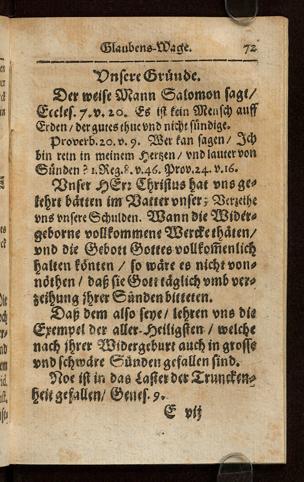 Glaubens-Wage. 72
Vnsere Gründe.
Der weise Mann Salomon sagt/
Eccles. 7. v. 20. Es ist kein Mensch auff
Erden/ der gutes thue vnd nicht sündige.
Proverb. 20. v. 9. Wer kan sagen/ Ich
bin rein in meinem Hertzen/ vnd lauter von
Sünden? 1. Reg. 8. v. 46. Prov. 24. v. 16.
Vnser HErr Christus hat vns ge-
lehrt bätten im Vatter vnser; Verzeihe
vns vnsere Schulden. Wann die Wider-
geborne vollkommene Wercke thäten/
vnd die Gebott Gottes vollkom̃enlich
halten könten/ so wäre es nicht von-
nöhten/ daß sie Gott täglich vmb ver-
zeihung jhrer Sünden bitteten.
Daß dem also seye/ lehren vns die
Exempel der aller-Heiligsten/ welche
nach jhrer Widergeburt auch in grosse
vnd schwäre Sünden gefallen sind.
Noe ist in das Laster der Truncken-
heit gefallen/ Genes. 9.
E vij